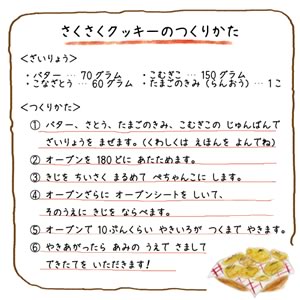 さくさくクッキーのつくりかた
<ざいりょう>
・バター … 70グラム ・こむぎこ … 150グラム
・こなざとう … 60グラム ・たまごのきみ（らんおう） … 1こ
<つくりかた>
① バター、さとう、たまごのきみ、こむぎこの じゅんばんで
ざいりょうを まぜます。（くわしくは えほんを よんでね）
② オーブンを 180どに あたためます。
③ きじを ちいさく まるめて ぺちゃんこに します。
④ オーブンざらに オーブンシートを しいて、
そのうえに きじを ならべます。
⑤ オーブンで 10ぷんくらい やきいろが つくまで やきます。
⑥ やきあがったら あみの うえで さまして
できたてを いただきます!